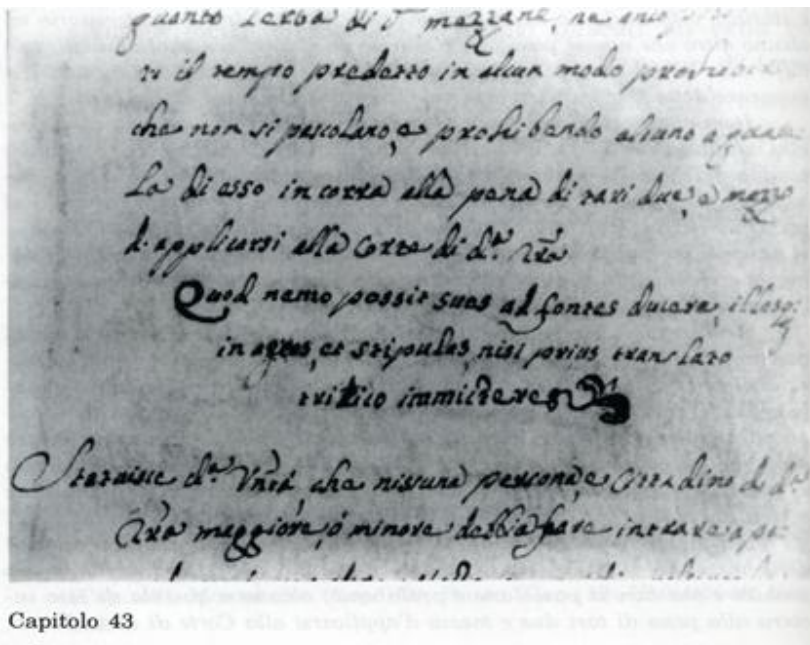 quanto l'erba di d.ᵃ mezzana, ne anco
ti il tempo predetto in alcun modo
che non si pascolaro, e prohibendo alcuno a
La di esso incorra alla pena di tari due, e mezzo
d'applicarsi alla Corte di d.ᵃ Trā
Quod nemo possit suas ad fontes ducere, illasq;
in agros, et stipulas, nisi prius translato
tritico immictere
Statuisce d.ᵃ Vnītà, che nissuna persona, e Cittadino di d.ᵃ
Trā maggiore, ó minore debbia fare intrare a
Capitolo 43